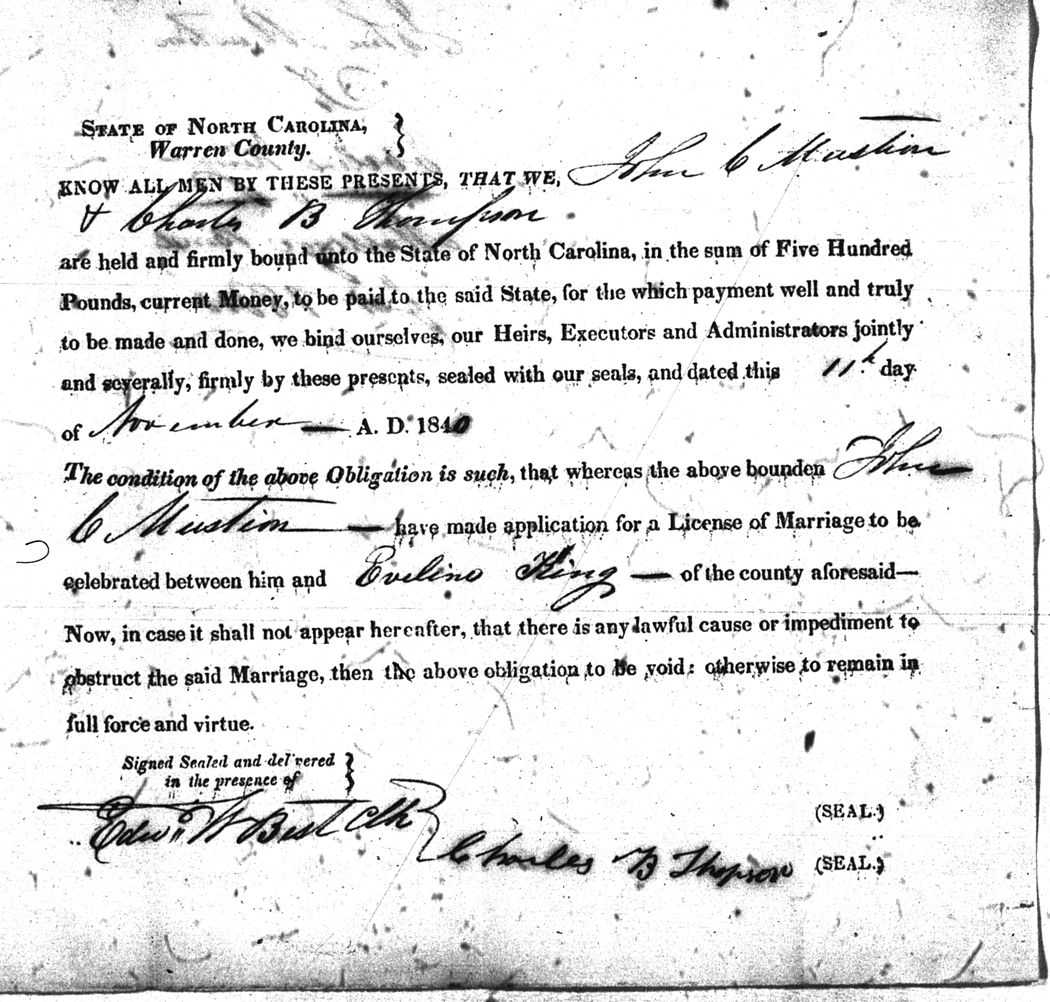 STATE OF NORTH CAROLINA,
Warren County.
KNOW ALL MEN BY THESE PRESENTS, THAT WE, John C Mustian
& Charles B Thompson
are held and firmly bound unto the State of North Carolina, in the sum of Five Hundred
Pounds, current Money, to be paid to the said State, for the which payment well and truly
to be made and done, we bind ourselves, our Heirs, Executors and Administrators jointly
and severally, firmly by these presents, sealed with our seals, and dated this 11th day
of November — A. D. 1840
The condition of the above Obligation is such, that whereas the above bounden John
C Mustian — have made application for a License of Marriage to be
celebrated between him and Eveline King — of the county aforesaid—
Now, in case it shall not appear hereafter, that there is any lawful cause or impediment to
obstruct the said Marriage, then the above obligation to be void: otherwise to remain in
full force and virtue.
Signed Sealed and delivered
in the presence of
(SEAL.)
Edwin W Best Clk
Charles B Thopson (SEAL.)